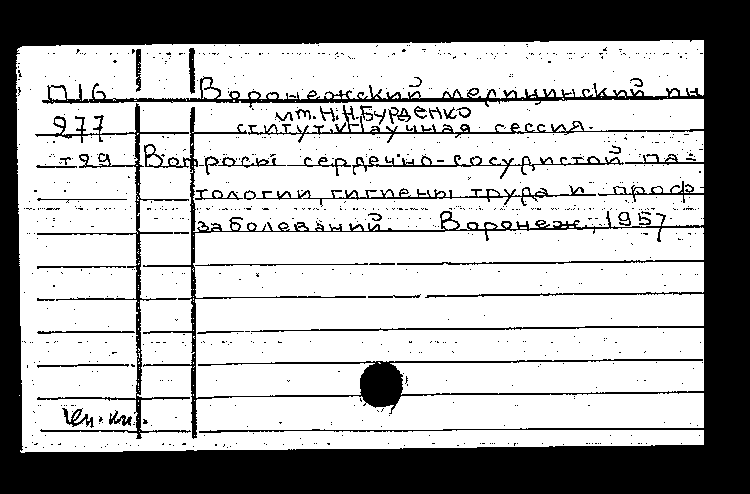 П16 Воронежский медицинский ин
им. Н.Н.Бурденко
277 ститут. Научная сессия.
т29 Вопросы сердечно-сосудистой па-
тологии, гигиены труда и проф-
заболеваний. Воронеж, 1957